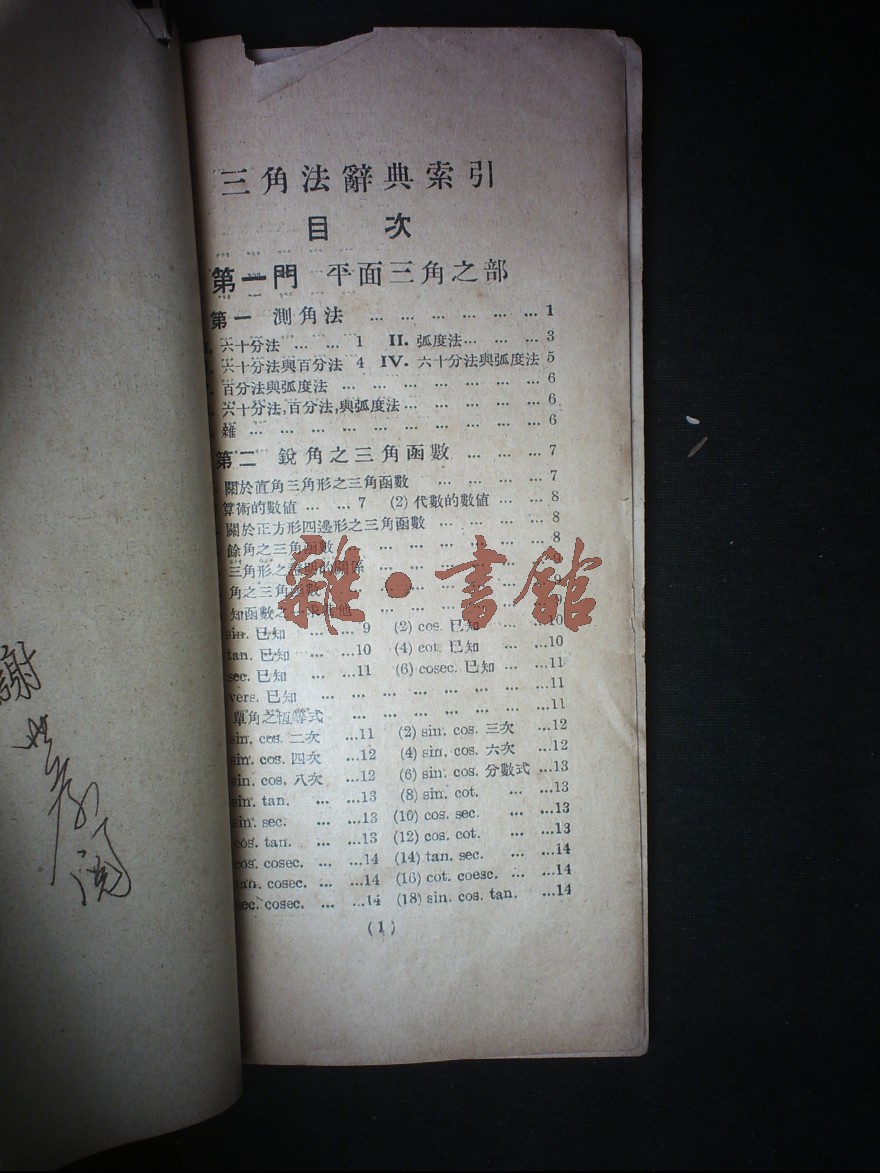 三角法辭典索引
目 次
第一門 平面三角之部
第一 測角法 … … … … … … … 1
六十分法 … … … 1 II. 弧度法… … … … 3
六十分法與百分法 4 IV. 六十分法與弧度法 5
百分法與弧度法 … … … … … … … 6
六十分法,百分法,與弧度法… … … … … 6
雜 … … … … … … … … … … 6
第二 銳角之三角函數 … … … 7
關於直角三角形之三角函數 … … … … 7
算術的數值 … … 7 (2) 代數的數值 … … 8
關於正方形四邊形之三角函數 … … … … 8
餘角之三角函數 … … … … … … 8
三角形之 的關係
角之三角函數
知函數之一求其他
sin. 已知 … … 9 (2) cos. 已知 … …10
tan. 已知 … …10 (4) cot. 已知 … …10
sec. 已知 … …11 (6) cosec. 已知 … …11
vers. 已知 … … … … … … …11
單角之恆等式 … … … … … … …11
sin. cos. 二次 …11 (2) sin. cos. 三次 …12
sin. cos. 四次 …12 (4) sin. cos. 六次 …12
sin. cos. 八次 …12 (6) sin. cos. 分數式 …13
sin. tan. … …13 (8) sin. cot. … …13
sin. sec. … …13 (10) cos. sec. … …13
cos. tan. … …13 (12) cos. cot. … …13
cos. cosec. … …14 (14) tan. sec. … …14
tan. cosec. … …14 (16) cot. coesc. … …14
sec. cosec. … …14 (18) sin. cos. tan. …14
(1)
雜·書館
謝